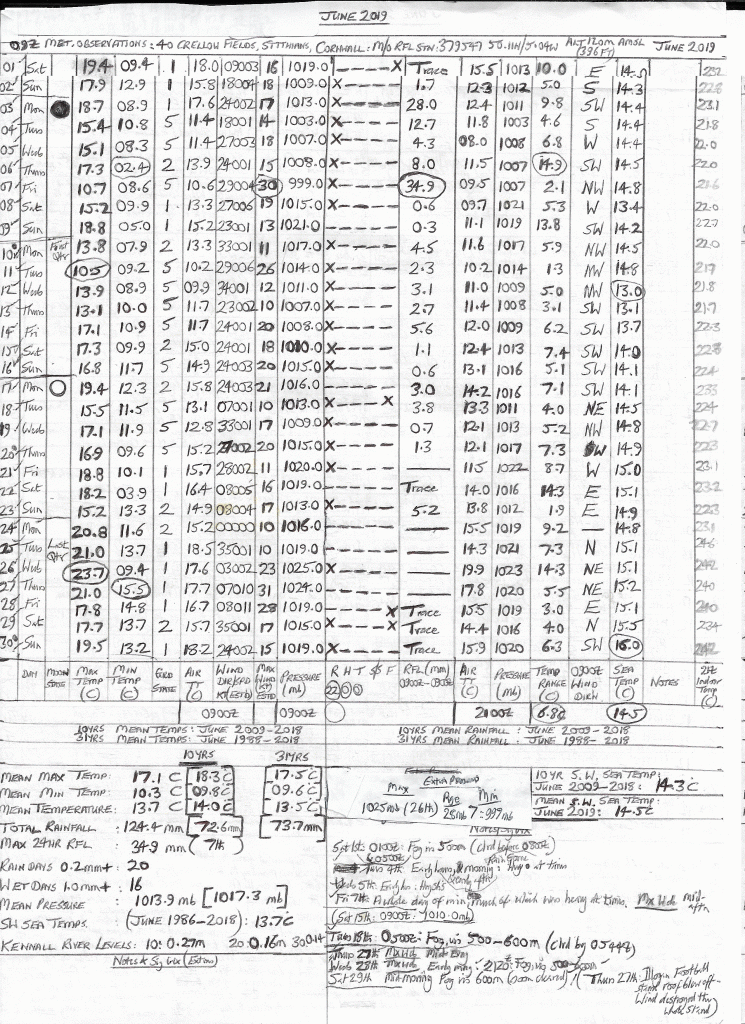 JUNE 2019
09Z MET. OBSERVATIONS: 40 CRELLOW FIELDS, STITHIANS, CORNWALL: M/O RFL STN: 379547 50.11N/5.04W ALT 120m AMSL (396FT) JUNE 2019
01 Sat 19.4 09.4 1 18.0 09003 16 1019.0 ----X Trace 15.5 1013 10.0 E 14.5
02 Sun 17.9 12.9 1 15.8 18004 18 1009.0 X---- 1.7 12.3 1012 5.0 S 14.3 22.8
03 Mon 18.7 08.9 1 17.6 24002 17 1013.0 X---- 28.0 12.4 1011 9.8 SW 14.4 23.1
04 Tues 15.4 10.8 5 11.4 18001 14 1003.0 X---- 12.7 11.8 1003 4.6 S 14.4 21.8
05 Wed 15.1 08.3 5 11.4 27003 18 1007.0 X---- 4.3 08.0 1008 6.8 W 14.4 22.0
06 Thurs 17.3 02.4 2 13.9 24001 15 1008.0 X---- 8.0 11.5 1007 14.9 SW 14.5 22.0
07 Fri 10.7 08.6 5 10.6 29004 30 999.0 X---- 34.9 09.5 1007 2.1 NW 14.8 21.6
08 Sat 15.2 09.9 1 13.3 27006 19 1015.0 X---- 0.6 09.7 1021 5.3 W 13.4 22.0
09 Sun 18.8 05.0 1 15.2 23001 13 1021.0 ---- 0.3 11.1 1019 13.8 SW 14.2 22.7
10 Mon First Qtr 13.8 07.9 2 13.3 33001 11 1017.0 X---- 4.5 11.6 1017 5.9 NW 14.5 22.0
11 Tues 10.5 09.2 5 10.2 29006 26 1014.0 X---- 2.3 10.2 1014 1.3 NW 14.8 21.7
12 Wed 13.9 08.9 5 09.9 34001 12 1011.0 X---- 3.1 11.0 1009 5.0 NW 13.0 21.8
13 Thurs 13.1 10.0 5 11.7 23002 10 1007.0 X---- 2.7 11.4 1008 3.1 SW 13.1 21.7
14 Fri 17.1 10.9 5 11.7 24001 20 1008.0 X---- 5.6 12.0 1009 6.2 SW 13.7 22.3
15 Sat 17.3 09.9 2 15.0 24001 18 1010.0 X---- 1.1 12.4 1013 7.4 SW 14.0 22.8
16 Sun 16.8 11.7 5 14.9 24003 20 1015.0 X---- 0.6 13.1 1016 5.1 SW 14.1 22.4
17 Mon 19.4 12.3 2 15.8 24003 21 1016.0 ---- 3.0 14.2 1016 7.1 SW 14.1 23.3
18 Tues 15.5 11.5 5 13.1 07001 10 1013.0 X---X 3.8 13.3 1011 4.0 NE 14.5 22.4
19 Wed 17.1 11.9 5 12.8 33001 17 1009.0 X---- 0.7 12.1 1013 5.2 NW 14.8 22.7
20 Thurs 16.9 09.6 5 15.2 27002 20 1015.0 X---- 1.3 12.1 1017 7.3 W 14.9 22.3
21 Fri 18.8 10.1 1 15.7 28002 11 1020.0 X---- — 11.5 1022 8.7 W 15.0 23.1
22 Sat 18.2 03.9 1 16.4 08005 16 1019.0 ---- Trace 14.0 1016 14.3 E 15.1 23.2
23 Sun 15.2 13.3 2 14.9 08004 17 1013.0 X---- 5.2 13.8 1012 1.9 E 14.9 22.3
24 Mon 20.8 11.6 2 15.2 00000 10 1016.0 ---- — 15.5 1019 9.2 — 14.8 23.1
25 Tues Last Qtr 21.0 13.7 1 18.5 35001 10 1019.0 ---- — 14.3 1021 7.3 N 15.1 24.6
26 Wed 23.7 09.4 1 17.6 03002 23 1025.0 X---- — 19.9 1023 14.3 NE 15.1 24.2
27 Thurs 21.0 15.5 1 17.7 07010 31 1024.0 ---- — 17.8 1020 5.5 NE 15.2 24.0
28 Fri 17.8 14.8 1 16.7 08011 28 1019.0 ----X Trace 15.5 1019 3.0 E 15.1 24.0
29 Sat 17.7 13.7 2 15.7 35001 17 1015.0 ----X Trace 14.4 1016 4.0 N 15.5 23.4
30 Sun 19.5 13.2 1 18.2 24002 15 1019.0 X---- Trace 15.9 1020 6.3 SW 16.0 24.2
DAY MOON STATE MAX TEMP (C) MIN TEMP (C) GRD STATE AIR TT (C) WIND DIR/SPD KT (ESTD) MAX WIND (KT) ESTD PRESSURE (mb) R H T S F RFL (mm) 0900Z-0900Z AIR TT (C) PRESSURE (mb) TEMP RANGE (C) 0900Z WIND DIRN SEA TEMP (C) NOTES 21Z Indoor Temp (C)
0900Z 0900Z 2100Z 6.8c 14.5
10YRS MEAN TEMPS: JUNE 2009-2018 10YRS MEAN RAINFALL: JUNE 2009-2018
31YRS MEAN TEMPS: JUNE 1988-2018 31YRS MEAN RAINFALL: JUNE 1988-2018
10YRS 31YRS
MEAN MAX TEMP: 17.1 C [18.3C] [17.5C]
MEAN MIN TEMP: 10.3 C [09.8C] [09.6C]
MEAN TEMPERATURE: 13.7 C [14.0C] [13.5C]
TOTAL RAINFALL: 124.4 mm [72.6mm] [73.7mm]
MAX 24HR RFL: 34.9 mm (7th)
RAIN DAYS 0.2mm+: 20
WET DAYS 1.0mm+: 16
MEAN PRESSURE: 1013.9 mb [1017.3 mb]
SW SEA TEMPS. (JUNE 1986-2018): 13.7C
KENNALL RIVER LEVELS: 10: 0.27m 20: 0.16m 30:0.14
Notes & Sig Wx (Ext on)
EXTR PRESSURE
Max Rge Min
1025mb (26th) 28mb 7=997mb
10YR S.W. SEA TEMP:
JUNE 2009-2018: 14.3C
MEAN S.W. SEA TEMP:
JUNE 2019: 14.5C
Notes Sig Wx
Sat 1st: 0100Z: Fog in 500m (clrd before 0800Z)
Tues 4th: Early hours & morning: Hvy at times
Wed 5th:
Fri 7th: A whole day of rain, much of which was heavy at times. Mx Wd mid-aftn
(Sat 15th: 0900Z: 1010.0mb)
Tues 18th: 0500Z: Fog in 500-600m (clrd by 0544Z)
Thurs 27th Mx Wd:
Wed 28th Mx Wd: Early morning: 2120: Fog in 500-600m
Sat 29th Mid-morning Fog in 600m (soon cleared) / (Thurs 27th: Illogan Football
stand roof blew off-
Wind
stand)